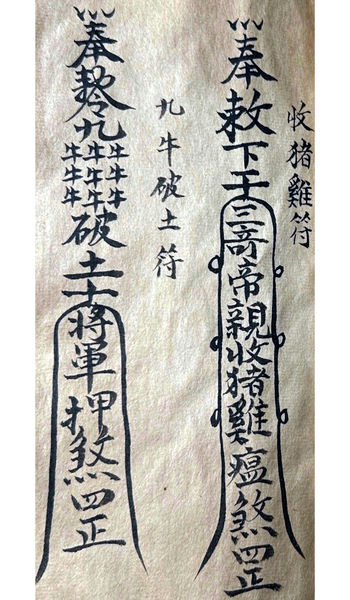 收猪雞符
奉敕下三奇帝親收猪雞瘟煞罡
九牛破土符
奉敕令九牛牛牛牛牛牛牛牛牛破土將軍押煞罡